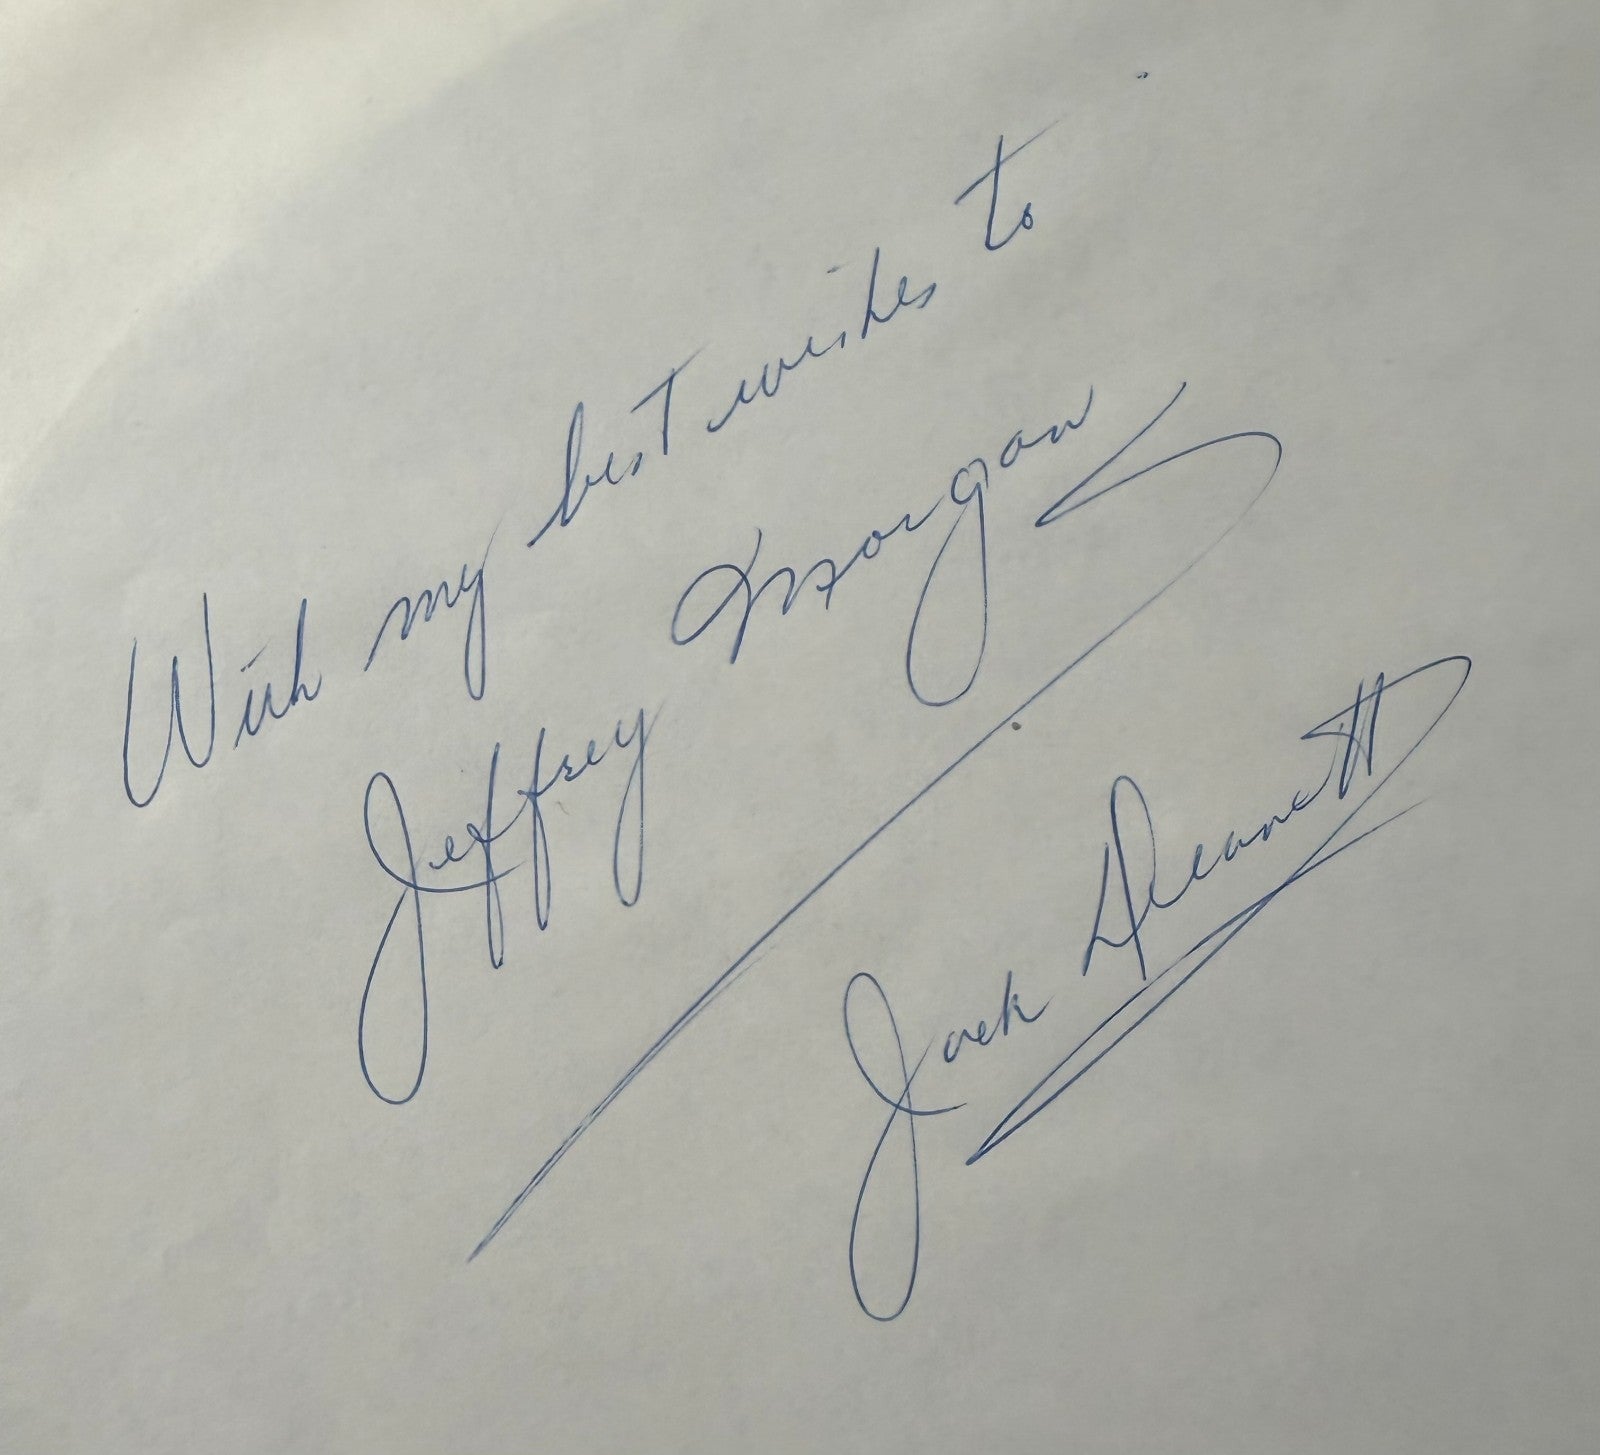 With my best wishes to
Jeffrey Morgan
Jack